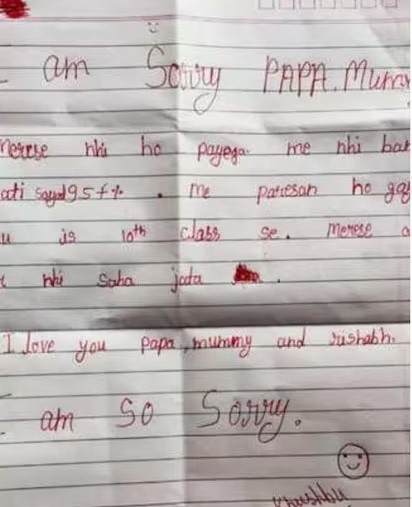 am Sorry PAPA. Mumm
merese nhi ho payega. me nhi ban
ati sayd 95+%. me paresan ho gay
u is 10th class se. merese a
nhi saha jata .
I love you papa, mummy and rishabh.
am so Sorry.
Khushbu